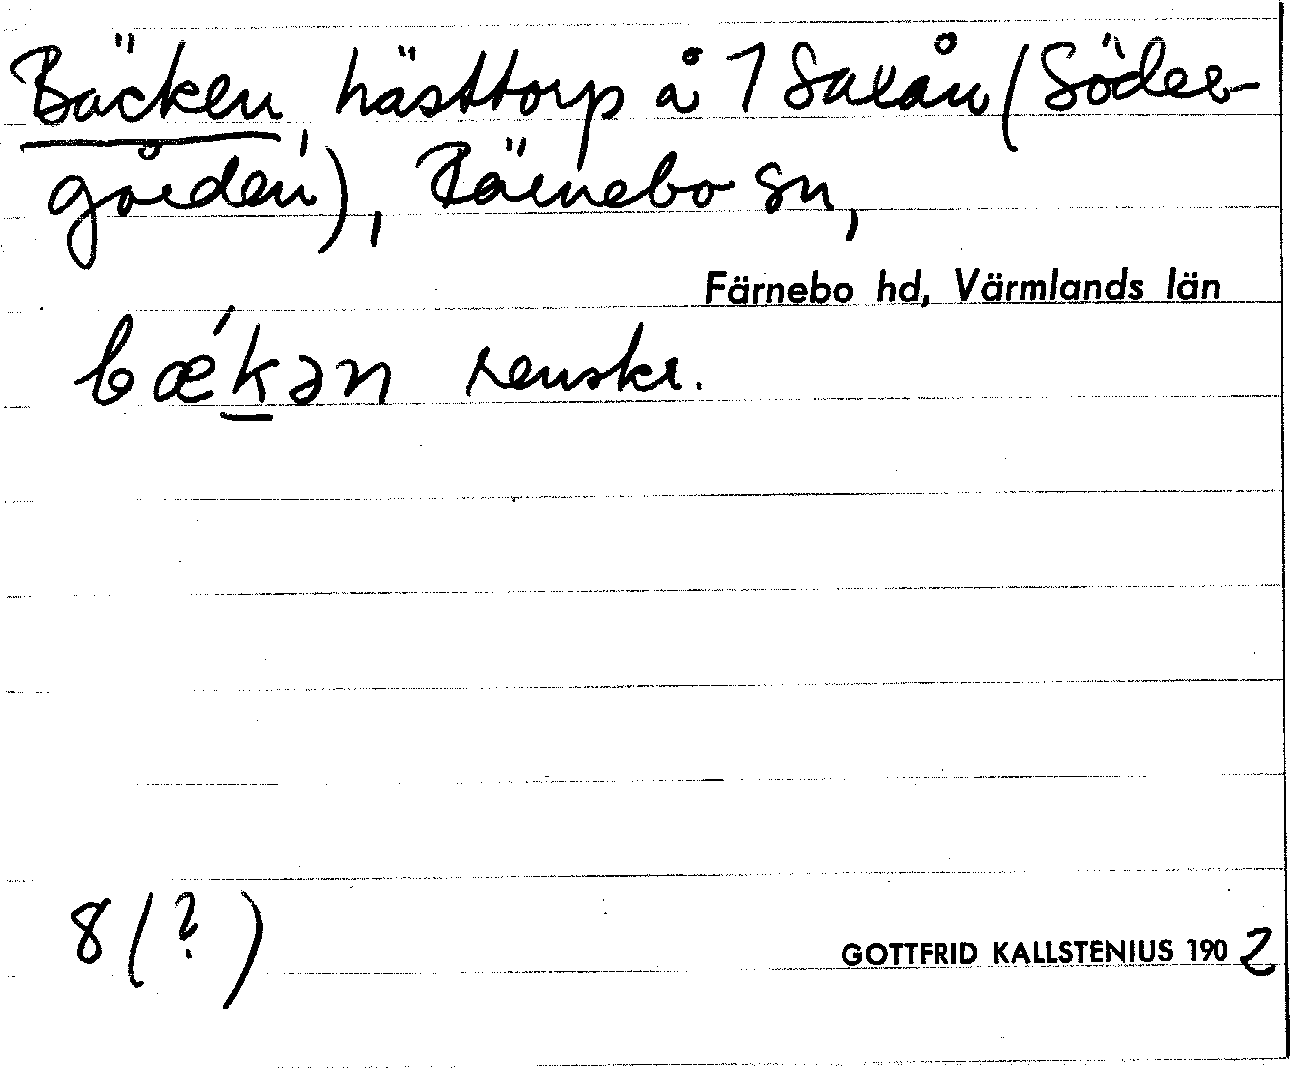 Bäcken, hästtorp å 1 Saxån (Söder-
gården), Rämnebo sn,
Färnebo hd, Värmlands län
bæ´kən renskr.
8 (?)
GOTTFRID KALLSTENIUS 1902